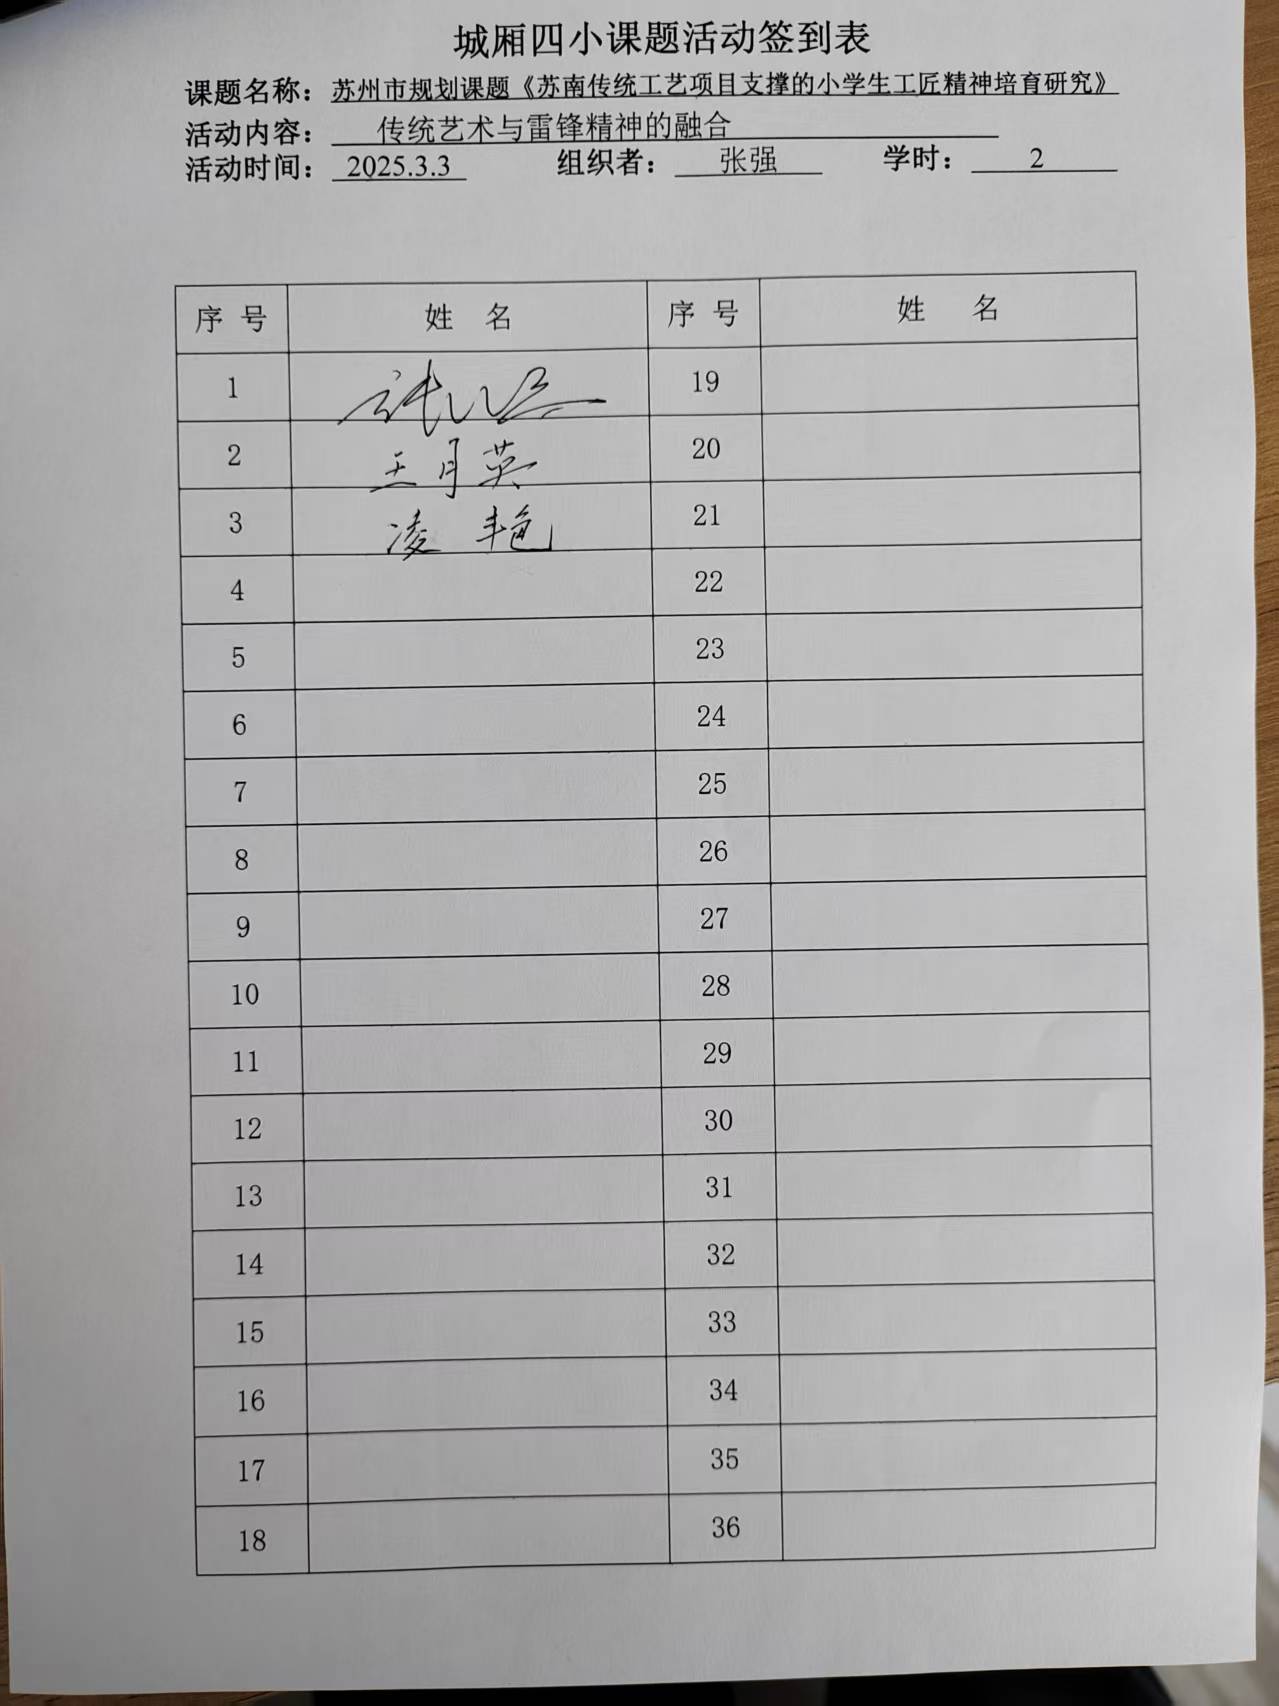 城厢四小课题活动签到表
课题名称：苏州市规划课题《苏南传统工艺项目支撑的小学生工匠精神培育研究》
活动内容： 传统艺术与雷锋精神的融合
活动时间： 2025.3.3 组织者： 张强 学时： 2
序 号 姓 名 序 号 姓 名
1 19
2 王月英 20
3 凌艳 21
4 22
5 23
6 24
7 25
8 26
9 27
10 28
11 29
12 30
13 31
14 32
15 33
16 34
17 35
18 36